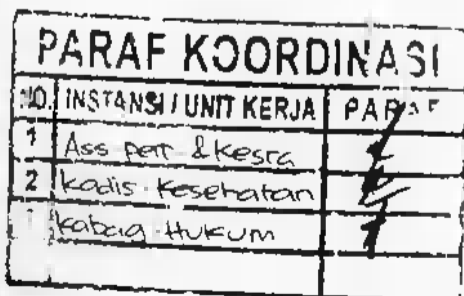 PARAF KOORDINASI
NO. INSTANSI / UNIT KERJA PARAF
1 Ass pem & Kesra
2 Kadis Kesehatan
Kabag Hukum